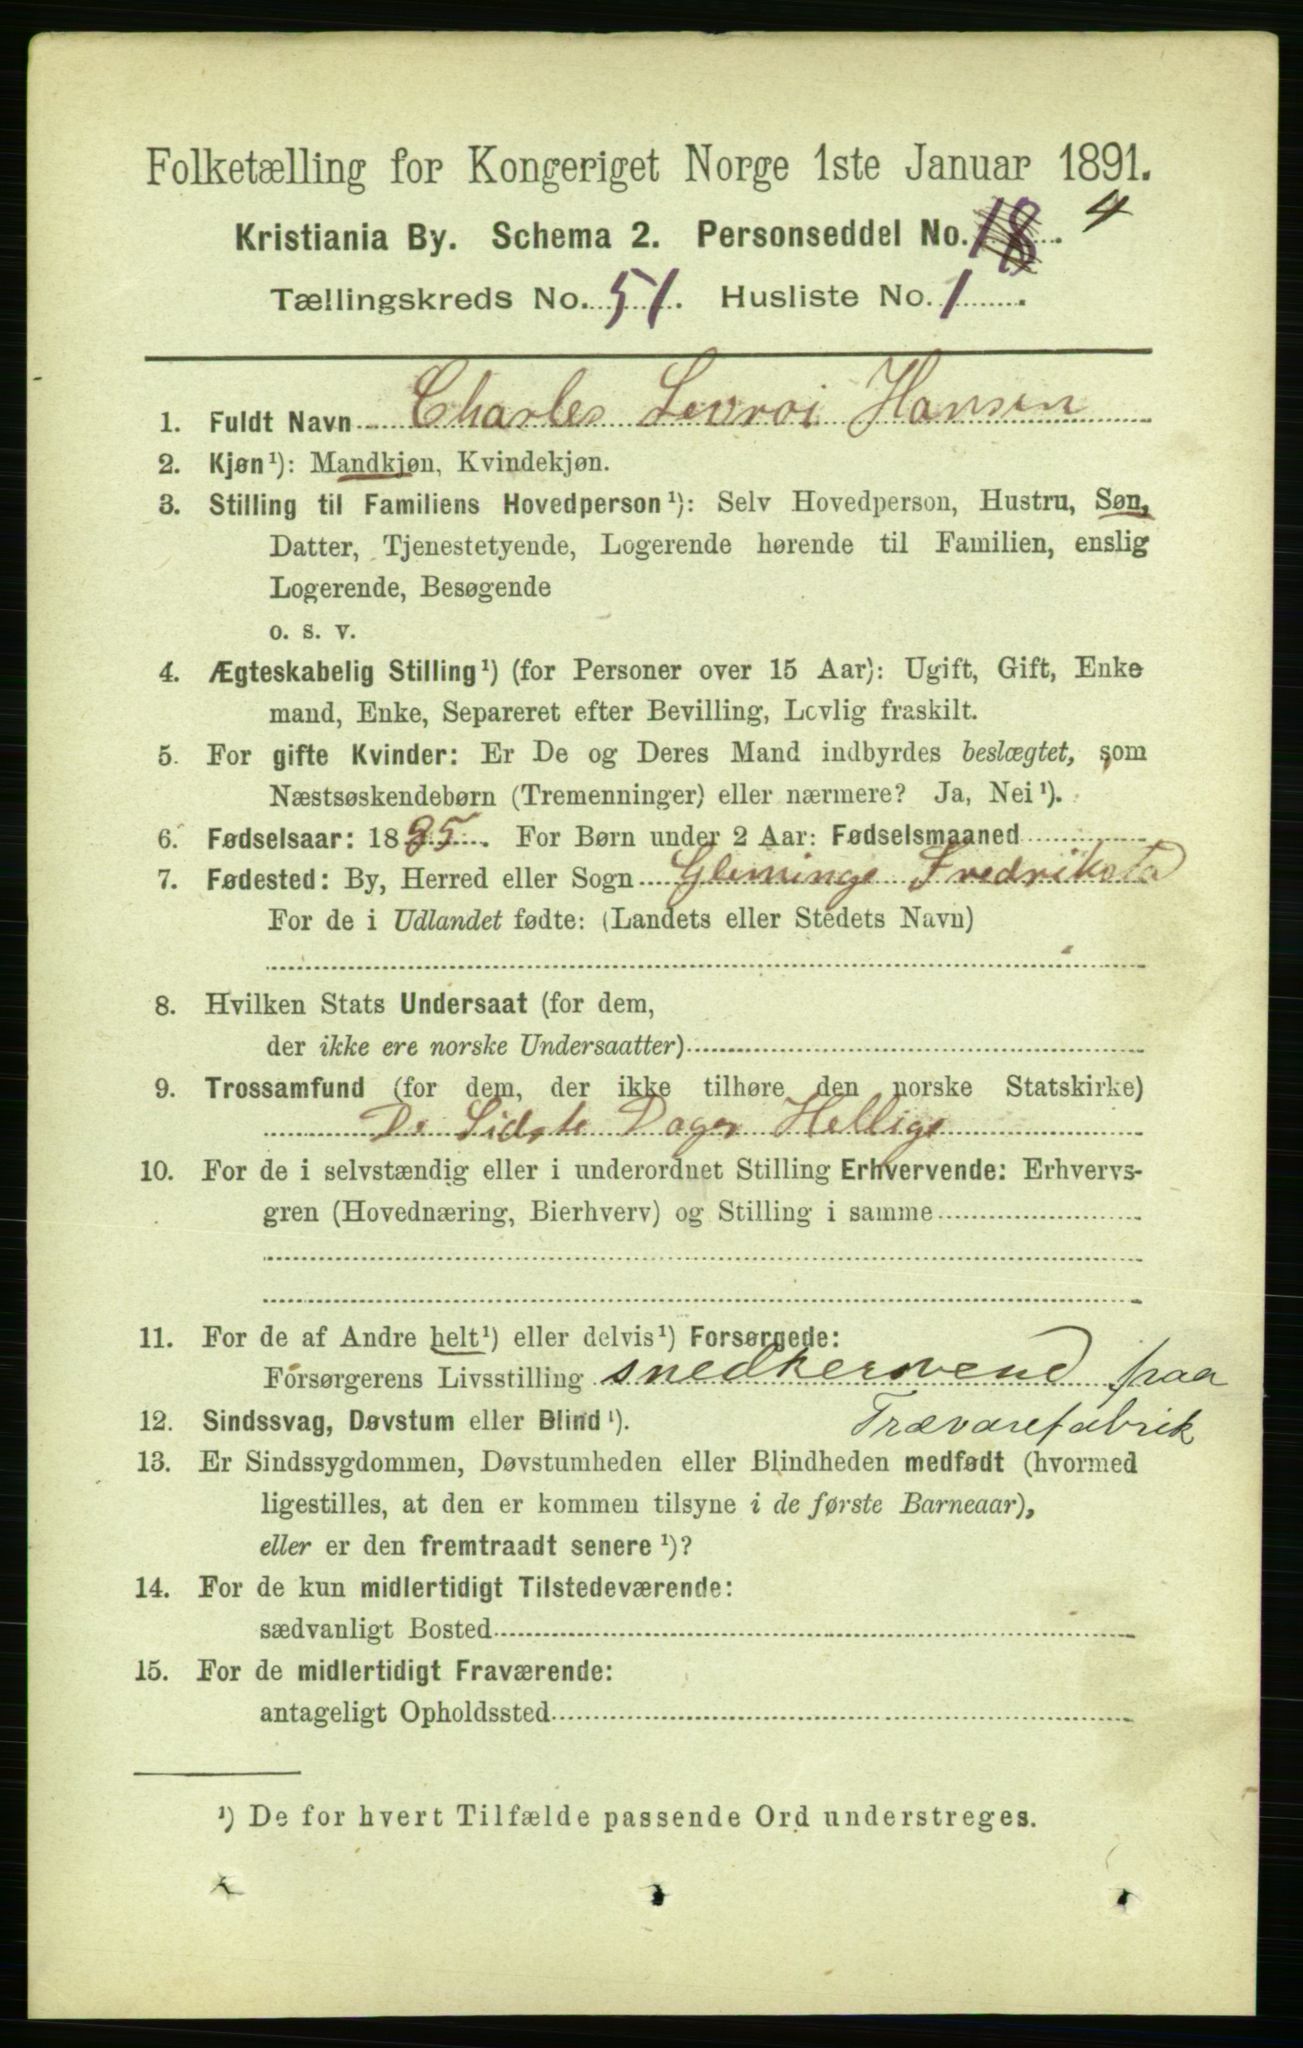 Folketælling for Kongeriget Norge 1ste Januar 1891.
Kristiania By. Schema 2. Personseddel No. 18. 4
Tællingskreds No. 51. Husliste No. 1.
1. Fuldt Navn Charles Levroi Hansen
2. Kjøn¹): Mandkjøn, Kvindekjøn.
3. Stilling til Familiens Hovedperson¹): Selv Hovedperson, Hustru, Søn,
Datter, Tjenestetyende, Logerende hørende til Familien, enslig
Logerende, Besøgende
o. s. v.
4. Ægteskabelig Stilling¹) (for Personer over 15 Aar): Ugift, Gift, Enke
mand, Enke, Separeret efter Bevilling, Lovlig fraskilt.
5. For gifte Kvinder: Er De og Deres Mand indbyrdes beslægtet, som
Næstsøskendebørn (Tremenninger) eller nærmere? Ja, Nei¹).
6. Fødselsaar: 1885. For Børn under 2 Aar: Fødselsmaaned
7. Fødested: By, Herred eller Sogn Gleminge Fredriksta
For de i Udlandet fødte: (Landets eller Stedets Navn)
8. Hvilken Stats Undersaat (for dem,
der ikke ere norske Undersaatter)
9. Trossamfund (for dem, der ikke tilhøre den norske Statskirke)
De Sidste Dager Hellige
10. For de i selvstændig eller i underordnet Stilling Erhvervende: Erhvervs-
gren (Hovednæring, Bierhverv) og Stilling i samme
11. For de af Andre helt¹) eller delvis¹) Forsørgede:
Forsørgerens Livsstilling snedkersvend paa
Trævarefabrik
12. Sindssvag, Døvstum eller Blind¹).
13. Er Sindssygdommen, Døvstumheden eller Blindheden medfødt (hvormed
ligestilles, at den er kommen tilsyne i de første Barneaar),
eller er den fremtraadt senere¹)?
14. For de kun midlertidigt Tilstedeværende:
sædvanligt Bosted
15. For de midlertidigt Fraværende:
antageligt Opholdssted
¹) De for hvert Tilfælde passende Ord understreges.